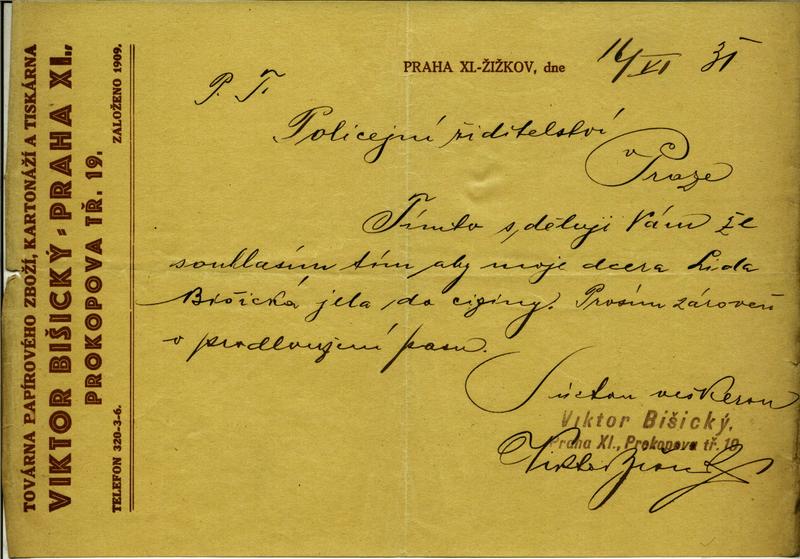 TOVÁRNA PAPÍROVÉHO ZBOŽÍ, KARTONÁŽÍ A TISKÁRNA
VIKTOR BIŠICKÝ - PRAHA XI.,
PROKOPOVA TŘ. 19.
TELEFON 320-3-6. ZALOŽENO 1909.
PRAHA XI.-ŽIŽKOV, dne 16/VI 31
P. T.
Policejní ředitelství
v Praze
Tímto sděluji Vám že
souhlasím tím aby moje dcera Lida
Bišická jela do ciziny. Prosím zároveň
o prodloužení pasu.
S úctou veškerou
Viktor Bišický,
Praha XI., Prokopova tř. 19.
Viktor Bišický